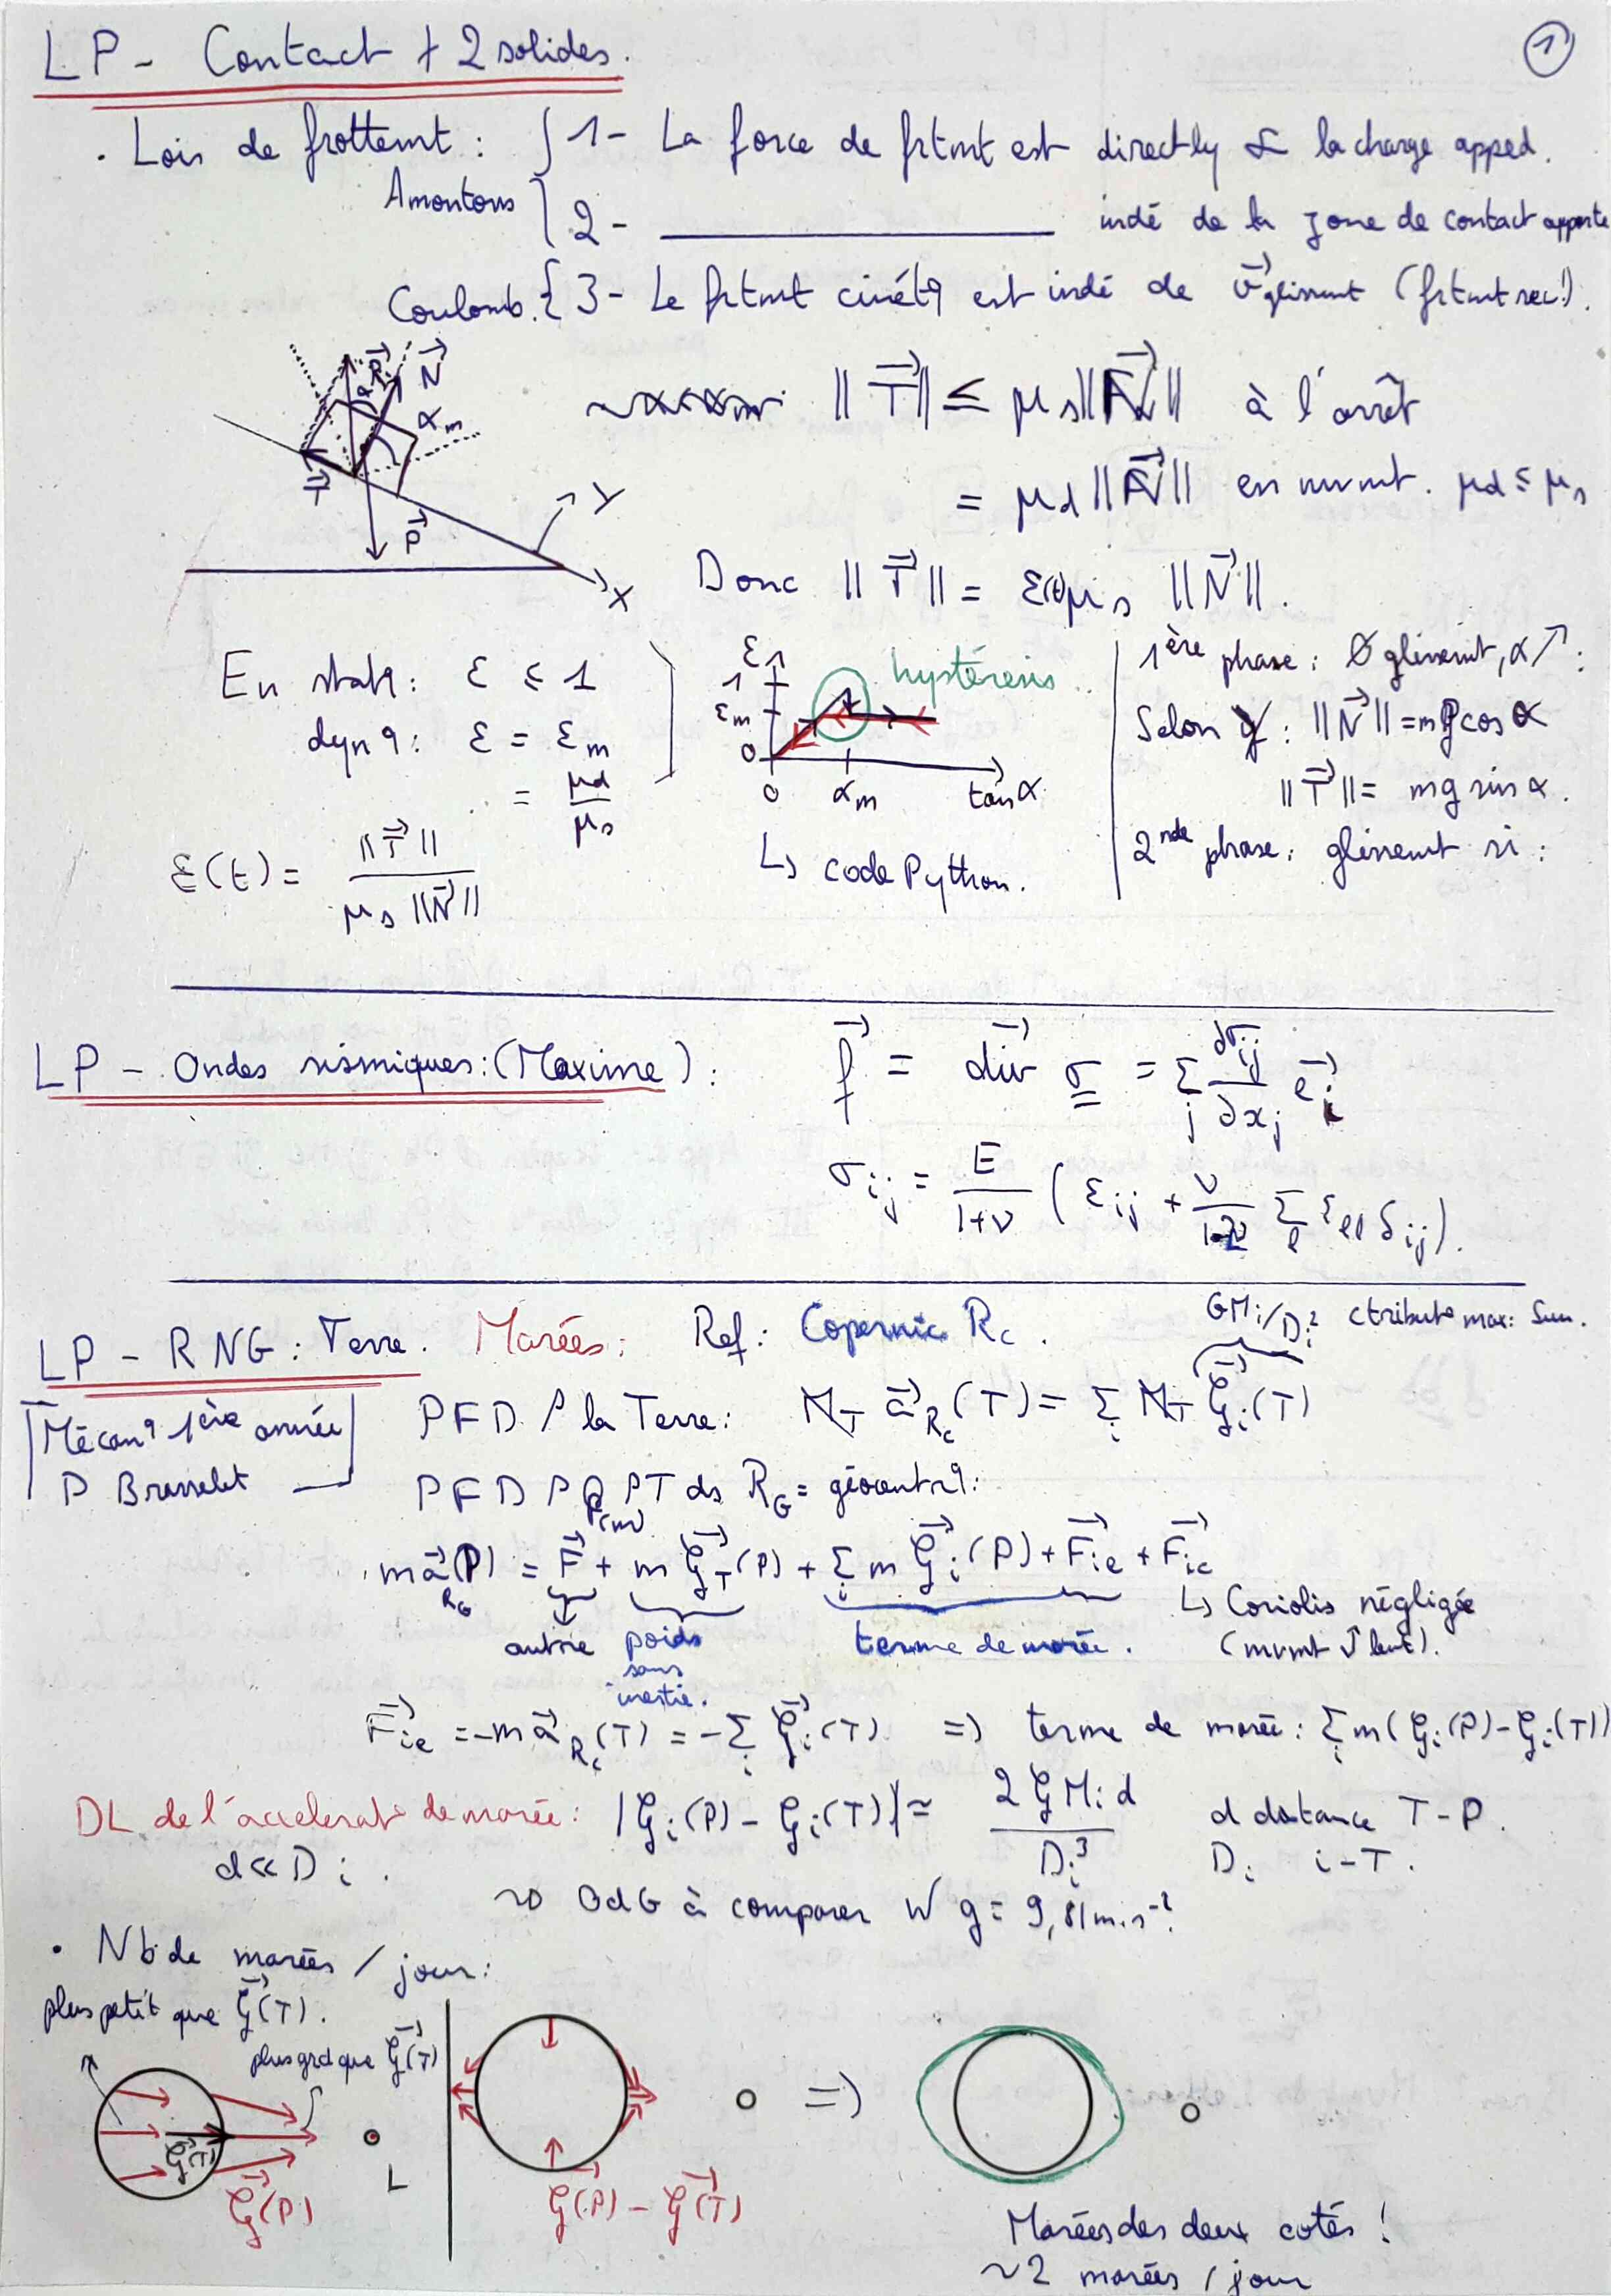 LP - Contact + 2 solides.
①
• Lois de frottemt : { 1- La force de frtmt est directly ∝ la charge apped.
Amontons
2- ________ indé de la zone de contact apparente
Coulomb. { 3- Le frtmt cinétq est indé de v⃗glissmt (frtmt sec!).
R⃗ N⃗
α αm
T⃗
P⃗
Y
X
||T⃗|| ≤ μs||N⃗|| à l'arrêt
= μd ||N⃗|| en mvmt. μd ≤ μs
Donc ||T⃗|| = ε(t)μs ||N⃗||.
En statq: ε ≤ 1
dynq: ε = εm
= μd/μs
ε(t) = ||T⃗|| / μs ||N⃗||
ε
1
εm
0
0 αm tan α
hystérésis
↳ code Python.
1ère phase : Ø glissemt, α ↗ :
Selon Y : ||N⃗|| = mg cos α
||T⃗|| = mg sin α.
2nde phase : glissemt si :
LP - Ondes sismiques : (Maxime) :
f⃗ = div⃗ σ = Σj ∂σij/∂xj e⃗i
σij = E/(1+ν) (εij + ν/(1-2ν) Σl εll δij).
LP - RNG : Terre. Marées : Ref : Copernic Rc.
GMi/Di² ctribut° max : Sun.
Mécanq 1ère année
P Brasselet
PFD / la Terre : MT a⃗Rc(T) = Σi MT G⃗i(T)
PFD PQ PT ds RG = géocentrq :
P(m)
m a⃗RG(P) = F⃗ + m G⃗T(P) + Σi m G⃗i(P) + F⃗ie + F⃗ic
autre
poids sans inertie.
terme de marée.
↳ Coriolis négligée
(mvmt lent).
F⃗ie = -m a⃗Rc(T) = -Σi G⃗i(T) => terme de marée : Σi m(Gi(P) - Gi(T))
DL de l'accelerat° de marée : |Gi(P) - Gi(T)| ≈ 2GMid/Di³ d distance T-P.
d << Di. Di i-T.
~> OdG à comparer w/ g = 9,81 m.s⁻².
• Nb de marées / jour :
plus petit que G⃗(T).
plus grd que G⃗(T)
G⃗(T)
L
G⃗(P)
G⃗(P) - G⃗(T)
=>
Marées des deux cotés !
~2 marées / jour